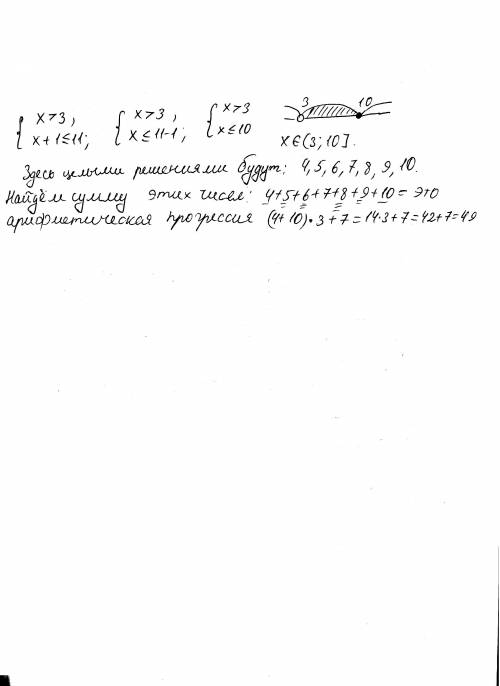 { x>3, x+1≤11; { x>3, x≤11-1; { x>3 x≤10 3 10
x∈(3; 10].
Здесь целыми решениями будут: 4, 5, 6, 7, 8, 9, 10.
Найдём сумму этих чисел: 4+5+6+7+8+9+10= это
арифметическая прогрессия (4+10)·3+7=14·3+7=42+7=49